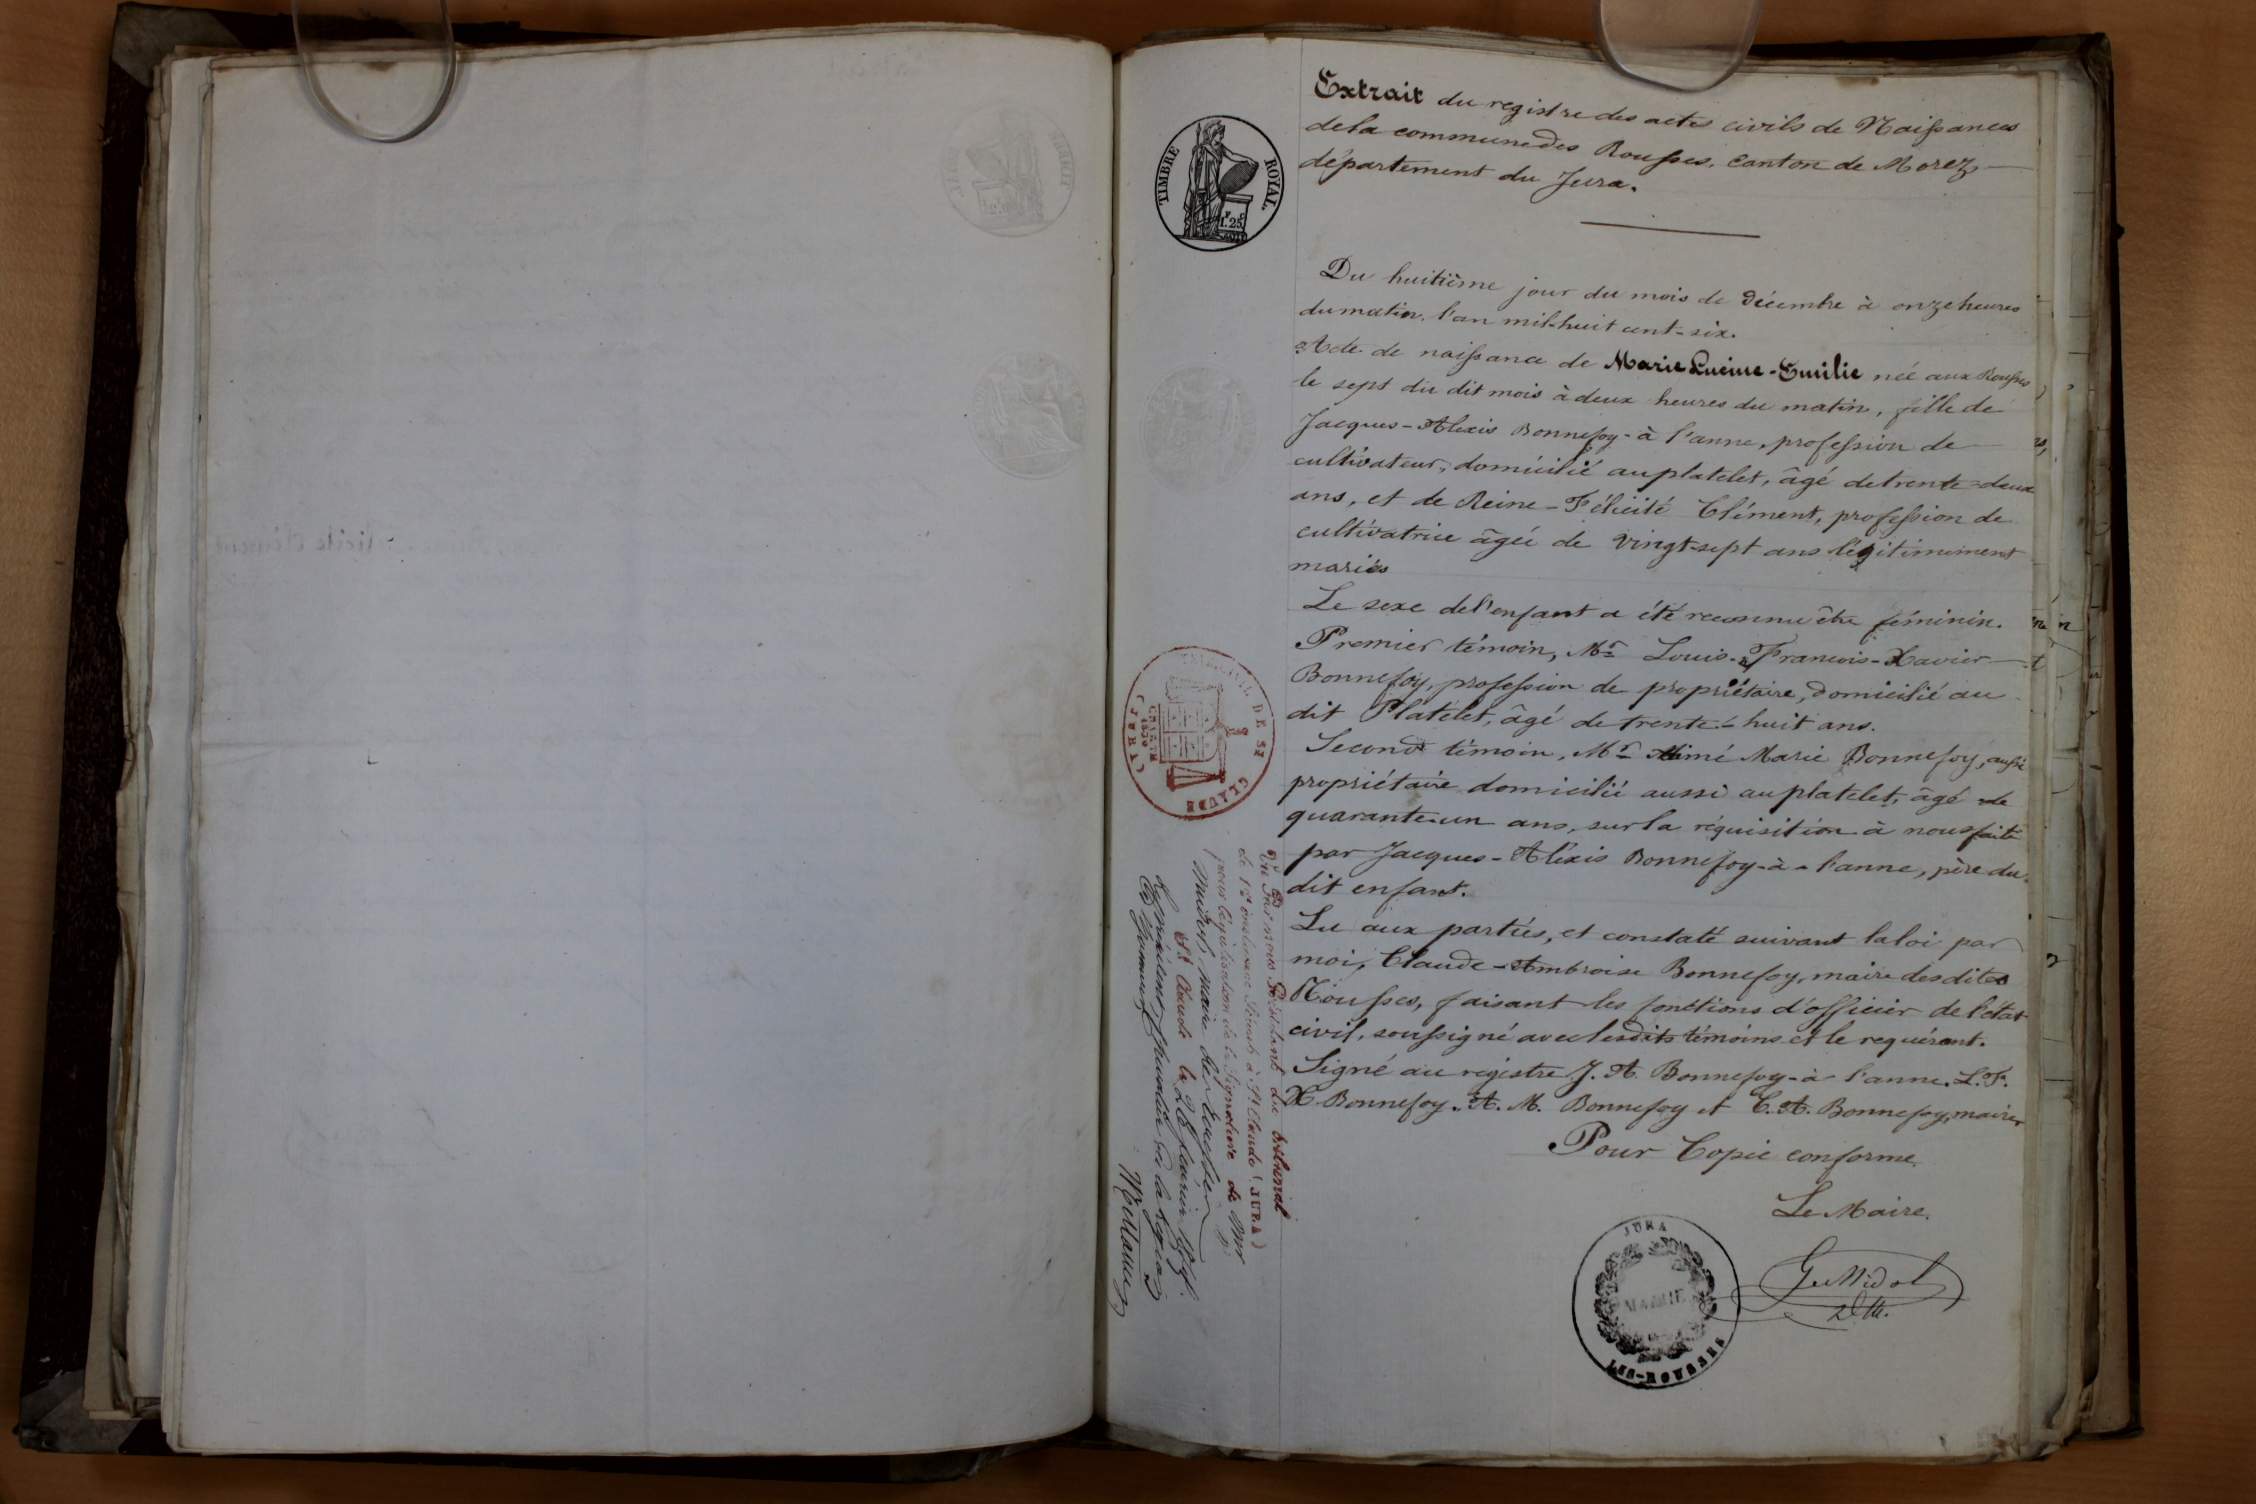 TIMBRE ROYAL.
1.25
Extrait du registre des actes civils de Naissances
de la commune des Rousses, canton de Morez
département du Jura.
Du huitième jour du mois de décembre à onze heures
du matin, l'an mil-huit cent-six.
Acte de naissance de Marie Lucine-Emilie née aux Rousses
le sept du dit mois à deux heures du matin, fille de
Jacques-Alexis Bonnefoy-à l'anne, profession de
cultivateur, domicilié au platelet, âgé de trente-deux
ans, et de Reine-Félicité Clément, profession de
cultivatrice âgée de vingt-sept ans légitimement
mariés
Le sexe de l'enfant a été reconnu être féminin.
Premier témoin, Mr Louis-François-Xavier
Bonnefoy, profession de propriétaire, domicilié au
dit Platelet, âgé de trente-huit ans.
Second témoin, Mr Aimé Marie Bonnefoy, aussi
propriétaire domicilié aussi au platelet, âgé de
quarante-un ans, sur la réquisition à nous faite
par Jacques-Alexis Bonnefoy-à-l'anne, père du
dit enfant.
Lu aux parties, et constaté suivant la loi par
moi, Claude-Ambroise Bonnefoy, maire des dites
Rousses, faisant les fonctions d'officier de l'état
civil, soussigné avec lesdits témoins et le requérant.
Signé au registre J. A. Bonnefoy-à l'anne. L. F.
X. Bonnefoy. A. M. Bonnefoy et C. A. Bonnefoy, maire
Pour Copie conforme
Le Maire.
JURA
MAIRIE
LES-ROUSSES
CIVIL DE ST CLAUDE
(JURA)
1830
Vu Par nous Président du tribunal
de 1re instance séant à St Claude (JURA)
pour légalisation de la Signature de Mr
maire des Rousses
St Claude le